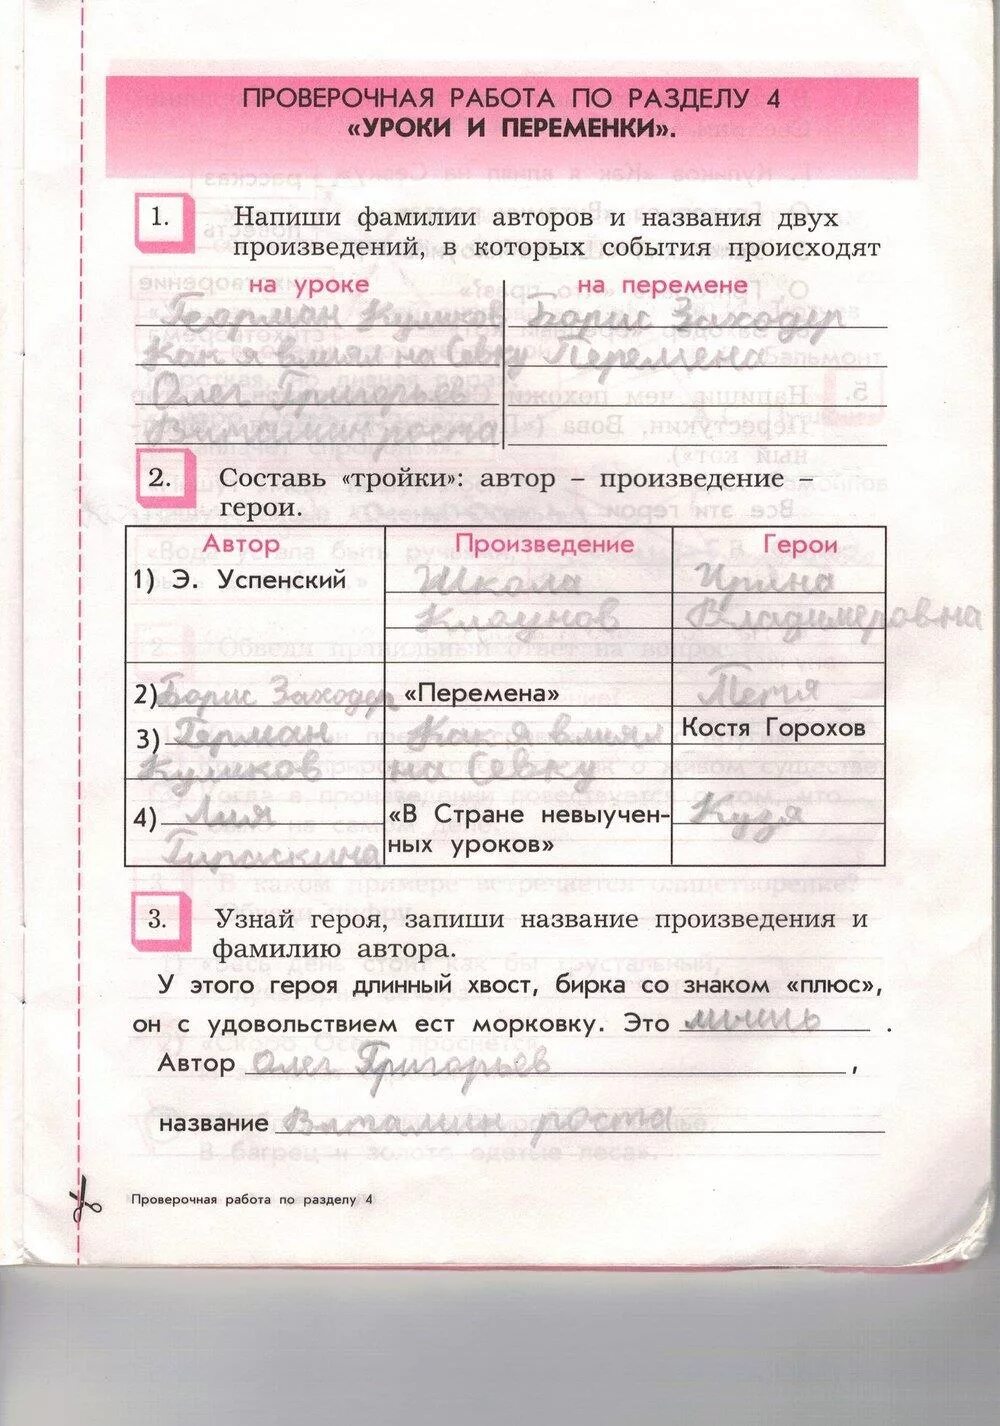 ПРОВЕРОЧНАЯ РАБОТА ПО РАЗДЕЛУ 4
«УРОКИ И ПЕРЕМЕНКИ».
1. Напиши фамилии авторов и названия двух
произведений, в которых события происходят
на уроке на перемене
Герман Куликов Борис Заходер
Как я влиял на Севку Перемена
Олег Григорьев
Витамин роста
2. Составь «тройки»: автор – произведение –
герои.
Автор Произведение Герои
1) Э. Успенский Школа Ирина
Клоунов Владимеровна
2) Борис Заходер «Перемена» Петя
3) Герман Как я влиял Костя Горохов
Куликов на Севку
4) Лия «В Стране невыучен- Кузя
Гираскина ных уроков»
3. Узнай героя, запиши название произведения и
фамилию автора.
У этого героя длинный хвост, бирка со знаком «плюс»,
он с удовольствием ест морковку. Это мышь .
Автор Олег Григорьев ,
название Витамин роста
Проверочная работа по разделу 4